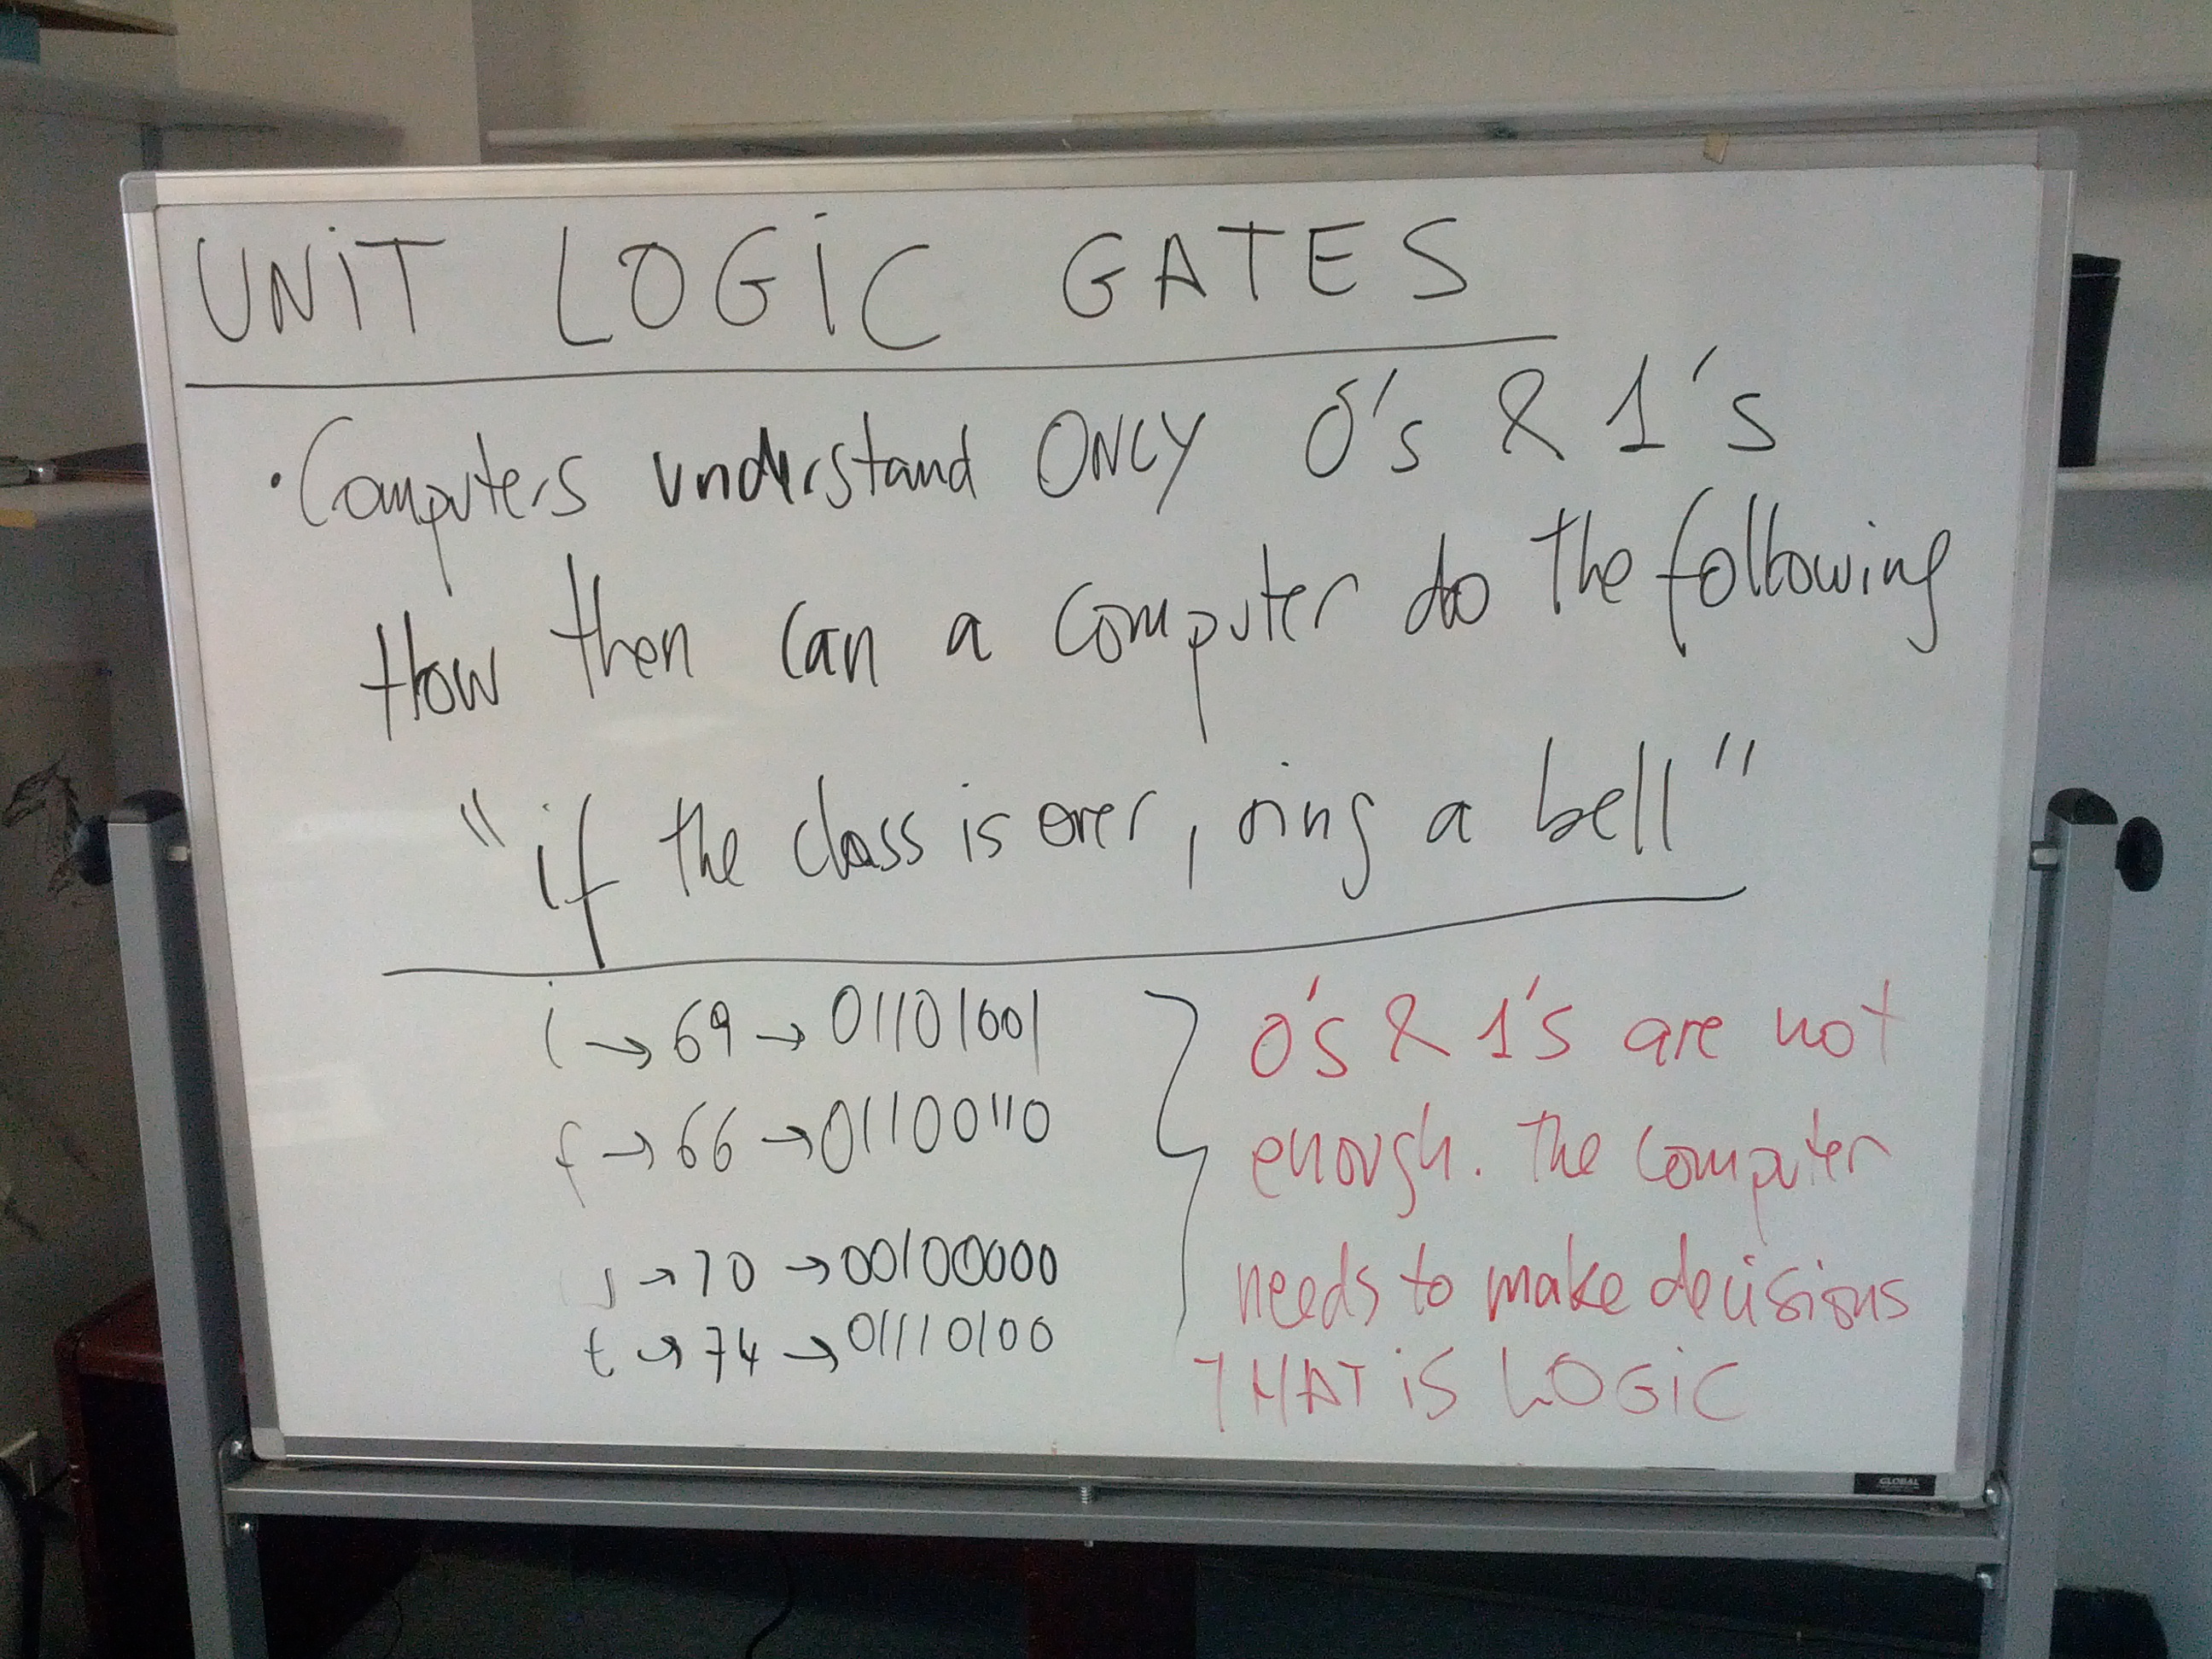 UNIT LOGIC GATES
· Computers understand ONLY 0's & 1's
How then can a computer do the following
"if the class is over, ring a bell"
i → 69 → 01101001
f → 66 → 01100110
→ 70 → 00100000
t → 74 → 01110100
0's & 1's are not
enough. The computer
needs to make decisions
THAT iS LOGIC
GLOBAL